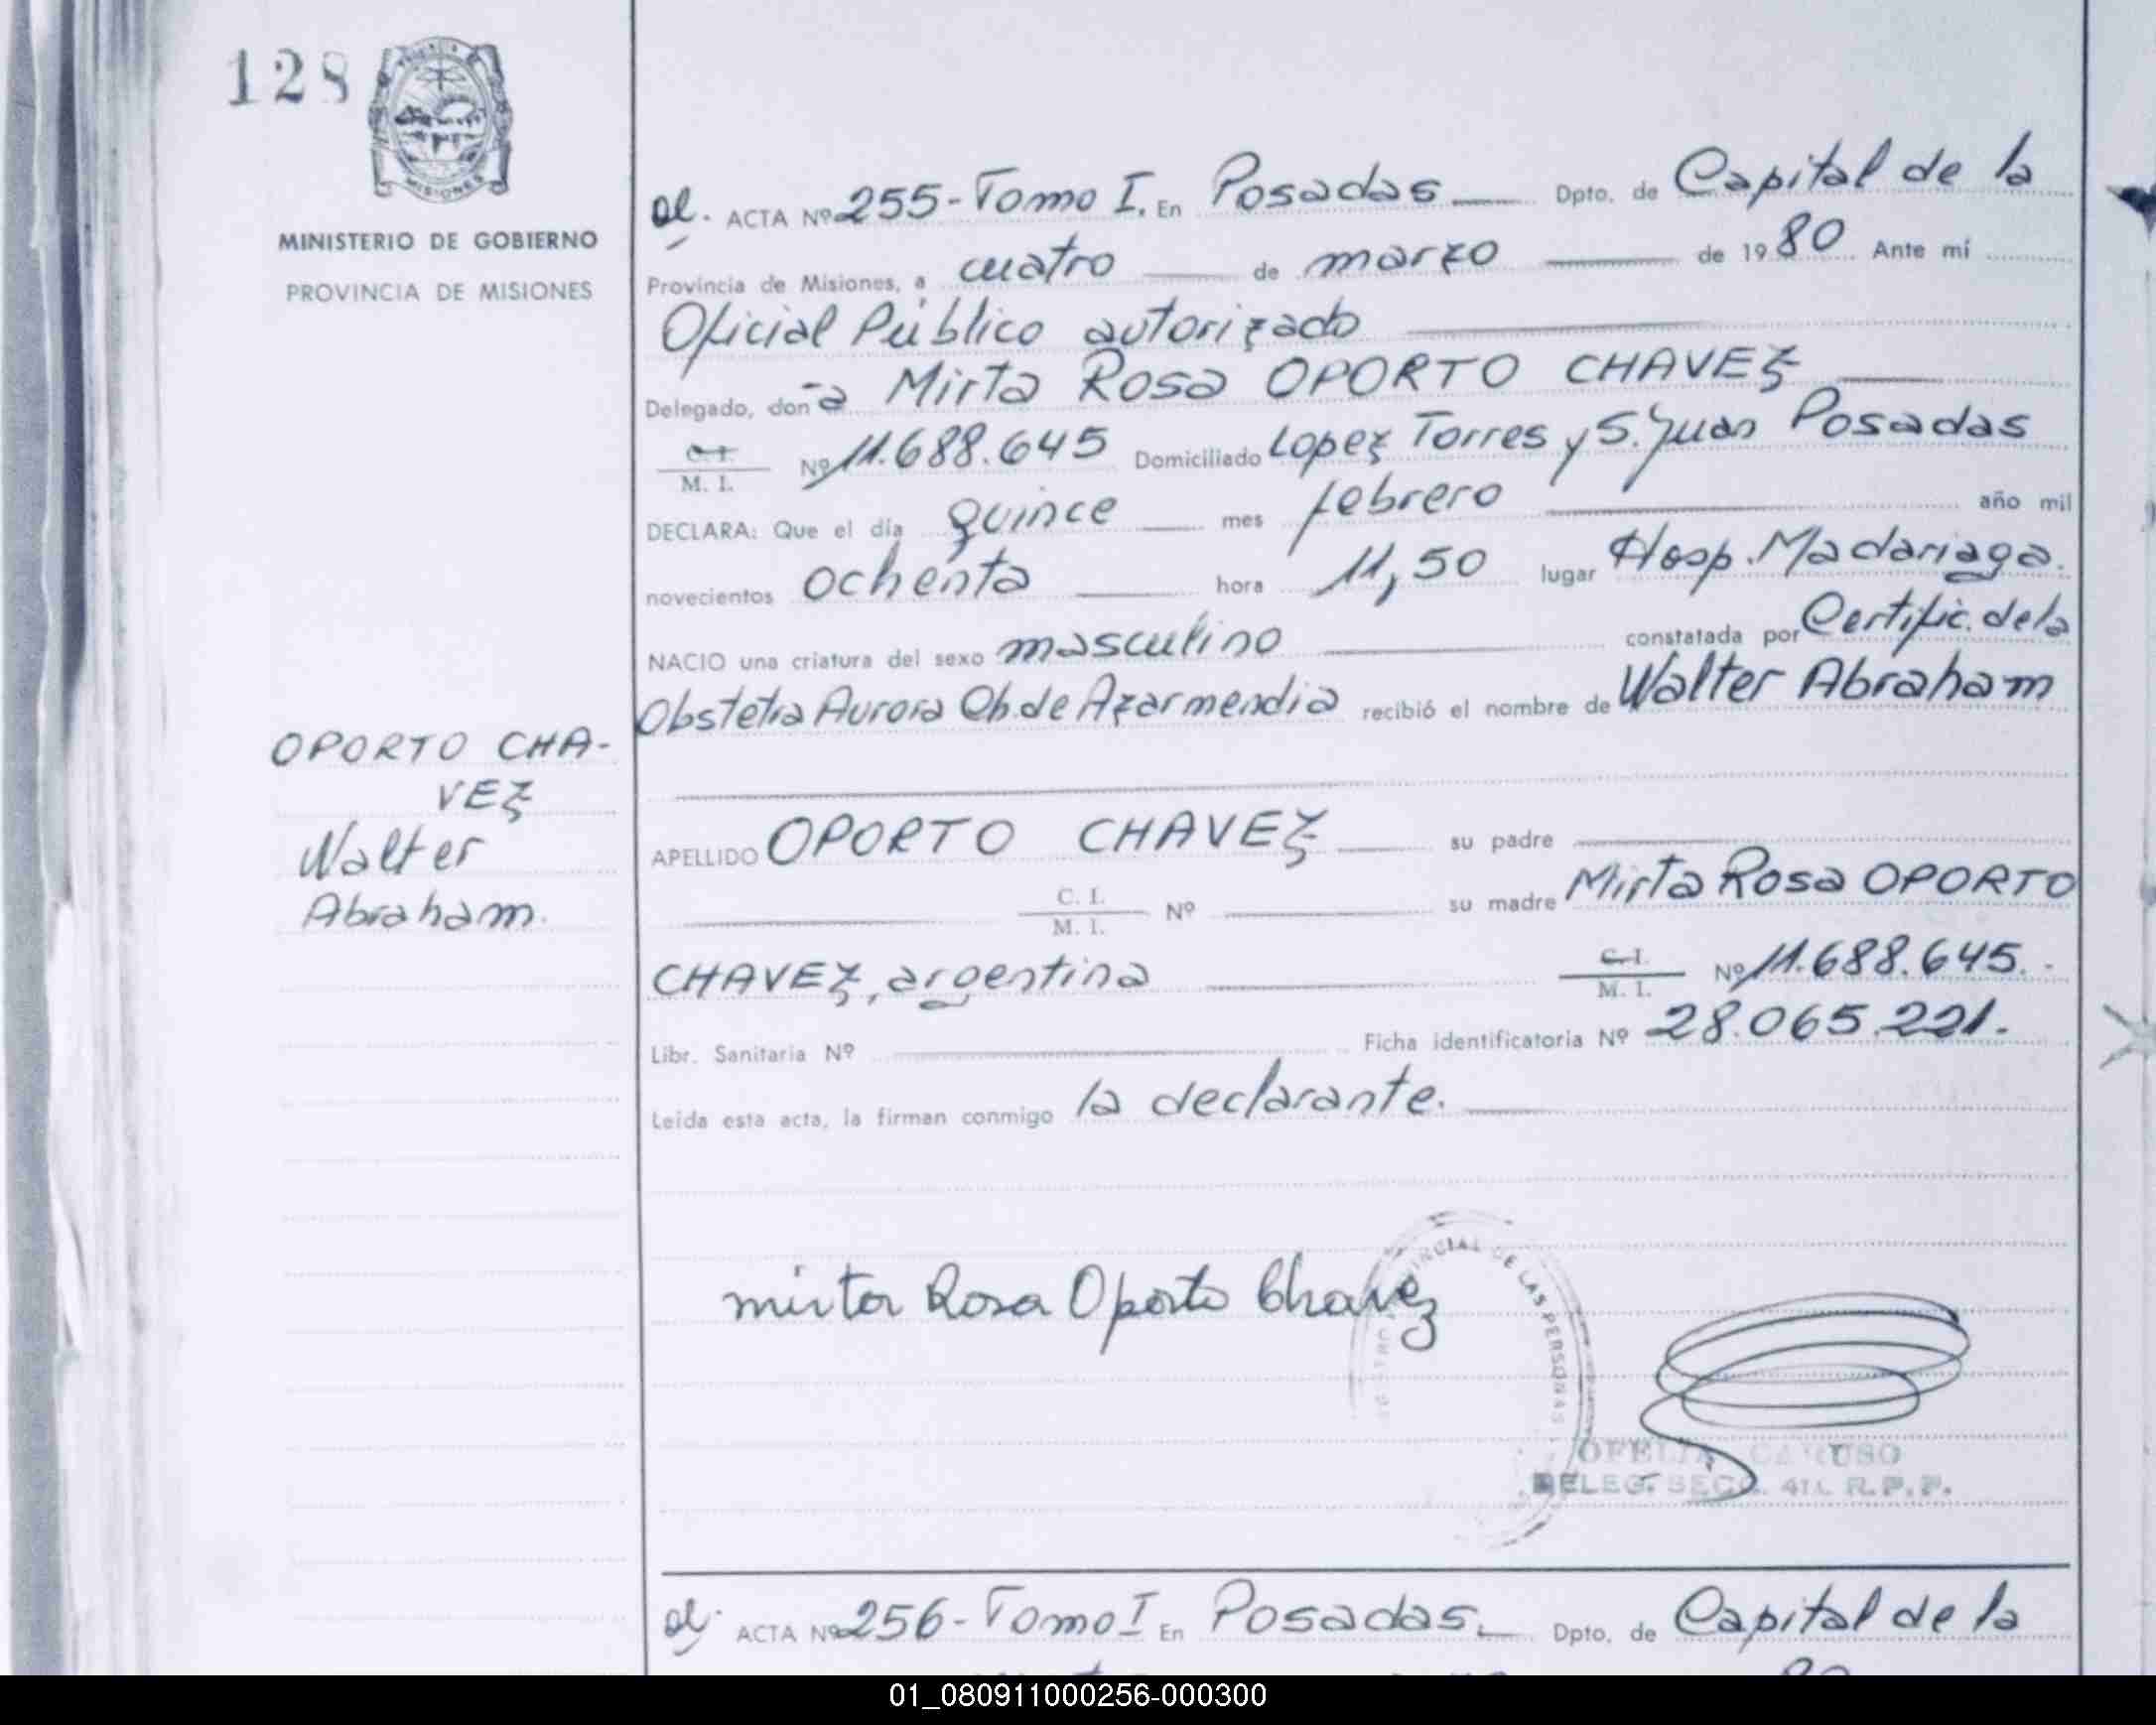 128
MISIONES
MINISTERIO DE GOBIERNO
PROVINCIA DE MISIONES
OPORTO CHA-
VEZ
Walter
Abraham.
ACTA Nº 255-Tomo I. En Posadas Dpto. de Capital de la
Provincia de Misiones, a cuatro de marzo de 1980 Ante mí
Oficial Público autorizado
Delegado, donã Mirta Rosa OPORTO CHAVEZ
C. I.
M. I. Nº 11.688.645 Domiciliado Lopez Torres y S. Juan Posadas
DECLARA: Que el día quince mes febrero año mil
novecientos ochenta hora 11,50 lugar Hosp. Madariaga.
NACIO una criatura del sexo masculino constatada por Certific. de la
Obstetra Aurora Ch. de Azarmendia recibió el nombre de Walter Abraham
APELLIDO OPORTO CHAVEZ su padre
C. I.
M. I. Nº su madre Mirta Rosa OPORTO
CHAVEZ, argentina C. I.
M. I. Nº 11.688.645.-
Libr. Sanitaria Nº Ficha identificatoria Nº 28.065.221.-
Leída esta acta, la firman conmigo la declarante.
mirta Rosa Oporto Chavez
DE LAS PERSONAS
OFELIA CARUSO
DELEG. SECC. R.P.P.
ACTA Nº 256-Tomo I En Posadas. Dpto. de Capital de la
01_080911000256-000300